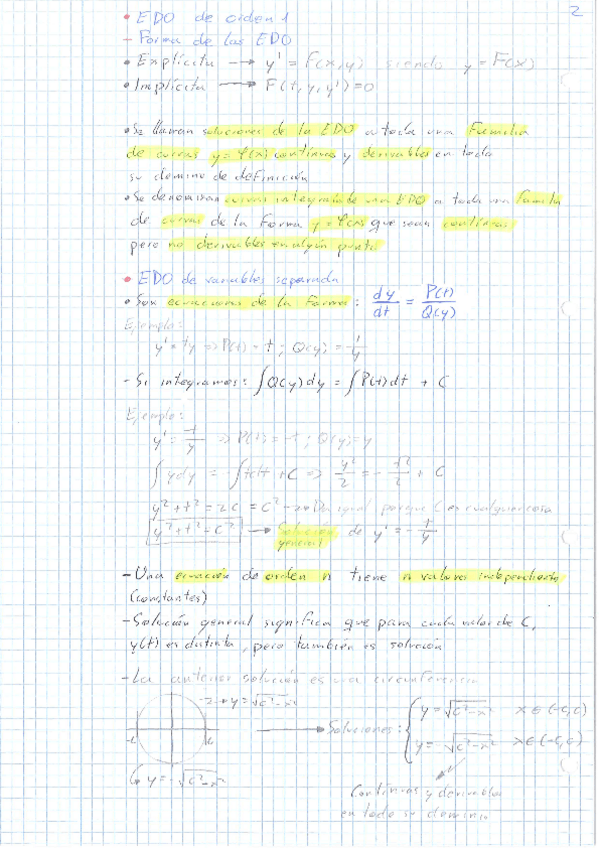 2
• EDO de orden 1
- Forma de las EDO
• Explícita → y' = F(x,y) siendo y = F(x)
• Implícita → F(t,y,y')=0
• Se llaman soluciones de la EDO a toda una familia
de curvas y=φ(x) continuas y derivables en todo
su dominio de definición
• Se denominan curvas integrales de una EDO a toda una familia
de curvas de la forma y=φ(x) que sean continuas
pero no derivables en algún punto
• EDO de variables separada
• Son ecuaciones de la forma: dy/dt = P(t)/Q(y)
Ejemplo:
y' = ty => P(t) = t ; Q(y) = 1/y
- Si integramos: ∫Q(y)dy = ∫P(t)dt + C
Ejemplo:
y' = -t/y => P(t) = -t ; Q(y) = y
∫ydy = -∫tdt + C => y²/2 = -t²/2 + C
y² + t² = 2C = C² → Da igual porque C es cualquier cosa
y² + t² = C² → Solución general de y' = -t/y
- Una ecuación de orden n tiene n valores independientes
(constantes)
- Solución general significa que para cada valor de C,
y(t) es distinta, pero también es solución
- La anterior solución es una circunferencia
→ y = √c²-x²
-c c
→ Soluciones: { y = √c²-x² x∈(-c,c)
y = √c²-x² x∈(-c,c)
→ y = -√c²-x²
Continuas y derivables
en todo su dominio